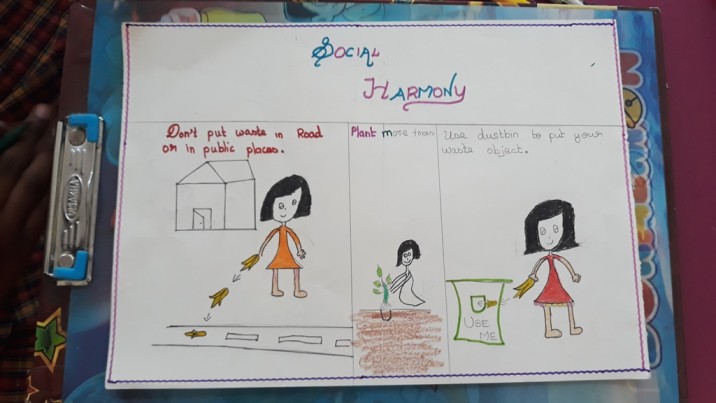 Social
Harmony
Don't put waste in Road
or in public places.
Plant more trees
Use dustbin to put your
waste object.
USE
ME